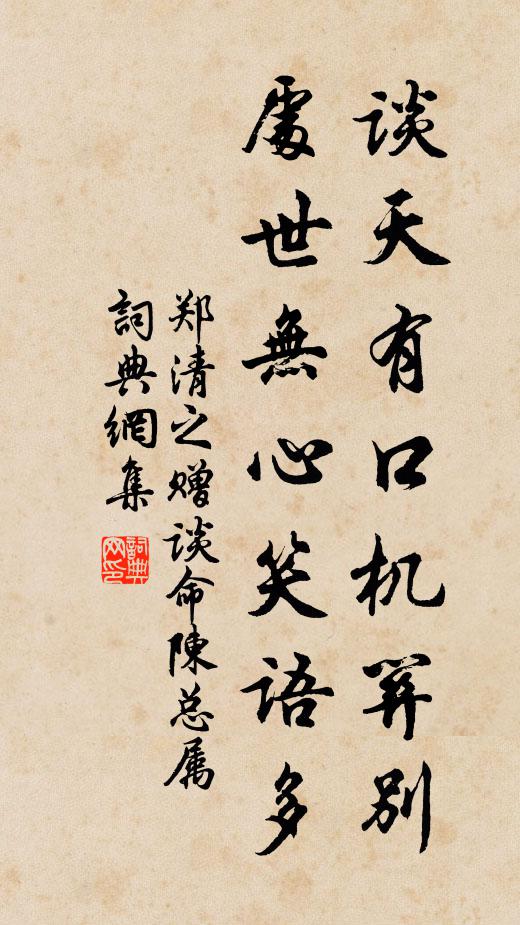 谈天有口机關别
處世無心笑语多
郑清之赠谈命陳总属
詞典網集
詞典网印